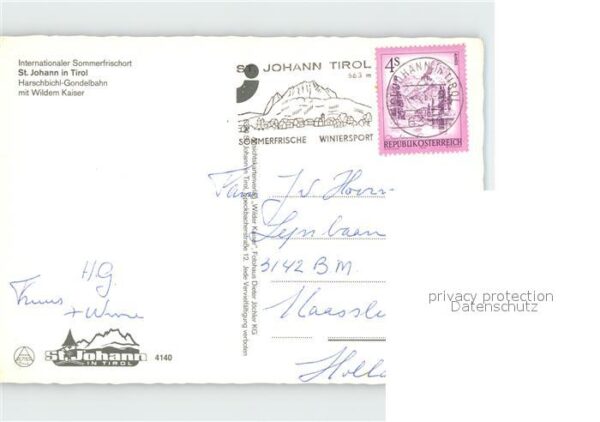 Internationaler Sommerfrischort
St. Johann in Tirol
Harschbichl-Gondelbahn
mit Wildem Kaiser
ST. JOHANN TIROL
563 m
SOMMERFRISCHE WINTERSPORT
4S
REPUBLIK ÖSTERREICH
JOHANN IN TIROL
Ansichtskartenverlag „Wilder Kaiser", Fotohaus Dieter Jöchler KG
St. Johann in Tirol, Speckbacherstraße 12. Jede Vervielfältigung verboten
Fam
5142 B.M.
Maassl
Holla
H.G.
privacy protection
Datenschutz
St. Johann
IN TIROL
4140